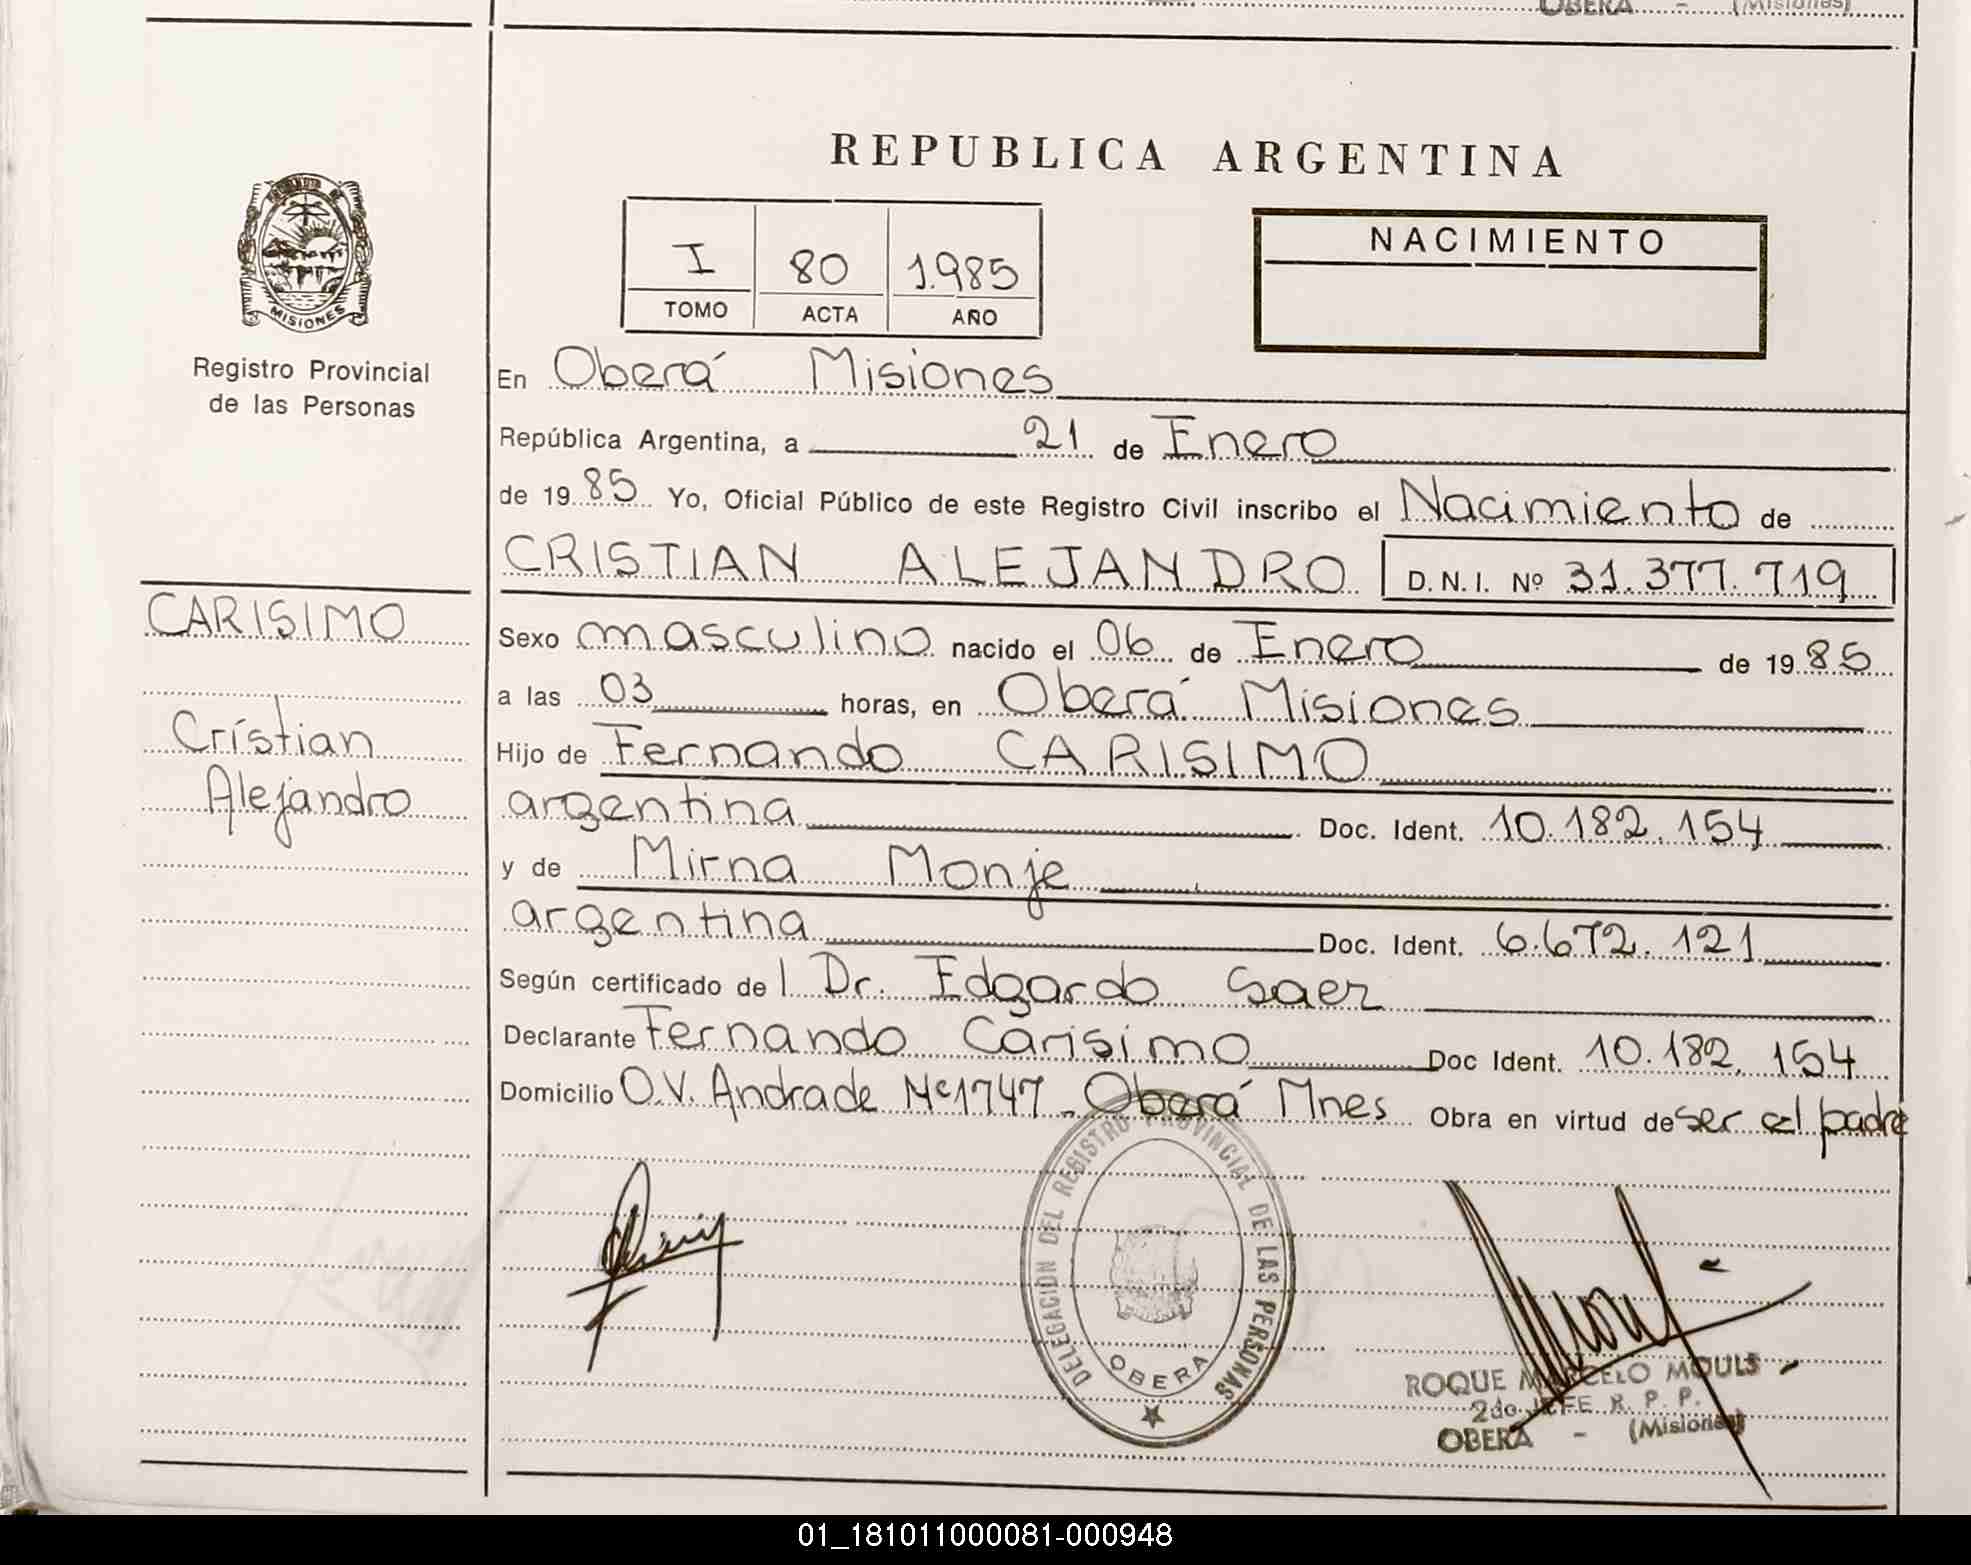 OBERA - (Misiones)
REPUBLICA ARGENTINA
I 80 1.985
TOMO ACTA AÑO
NACIMIENTO
MISIONES
Registro Provincial
de las Personas
En Oberá Misiones
República Argentina, a 21 de Enero
de 19 85 Yo, Oficial Público de este Registro Civil inscribo el Nacimiento de
CRISTIAN ALEJANDRO D.N.I. Nº 31.377.719
CARISIMO
Cristian
Alejandro
Sexo masculino nacido el 06 de Enero de 19 85
a las 03 horas, en Oberá Misiones
Hijo de Fernando CARISIMO
argentina Doc. Ident. 10.182.154
y de Mirna Monje
argentina Doc. Ident. 6.672.121
Según certificado de l Dr. Edgardo Saez
Declarante Fernando Carisimo Doc Ident. 10.182.154
Domicilio O.V. Andrade Nº 1747 - Oberá Mnes Obra en virtud de ser el padre
DELEGACION DEL REGISTRO PROVINCIAL DE LAS PERSONAS
OBERA
ROQUE MARCELO MOULS
2do JEFE R. P. P.
OBERA - (Misiones)
01_181011000081-000948